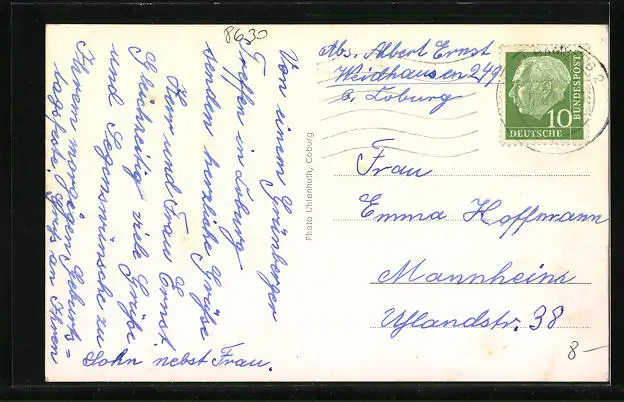 8630
Von einem Grünberger
Treffen in Coburg
senden herzliche Grüße
Herr und Frau Ernst
Gleichzeitig viele Grüße
und Segenswünsche zu
Ihrem morgigen Geburts=
tagsfeste. Gruß an Ihren
Sohn nebst Frau.
Photo Uhlenhuth, Coburg
Abs. Albert Ernst
Weidhausen 249
b. Coburg
DEUTSCHE
BUNDESPOST
10
Frau
Emma Hoffmann
Mannheim
Uhlandstr. 38
8-